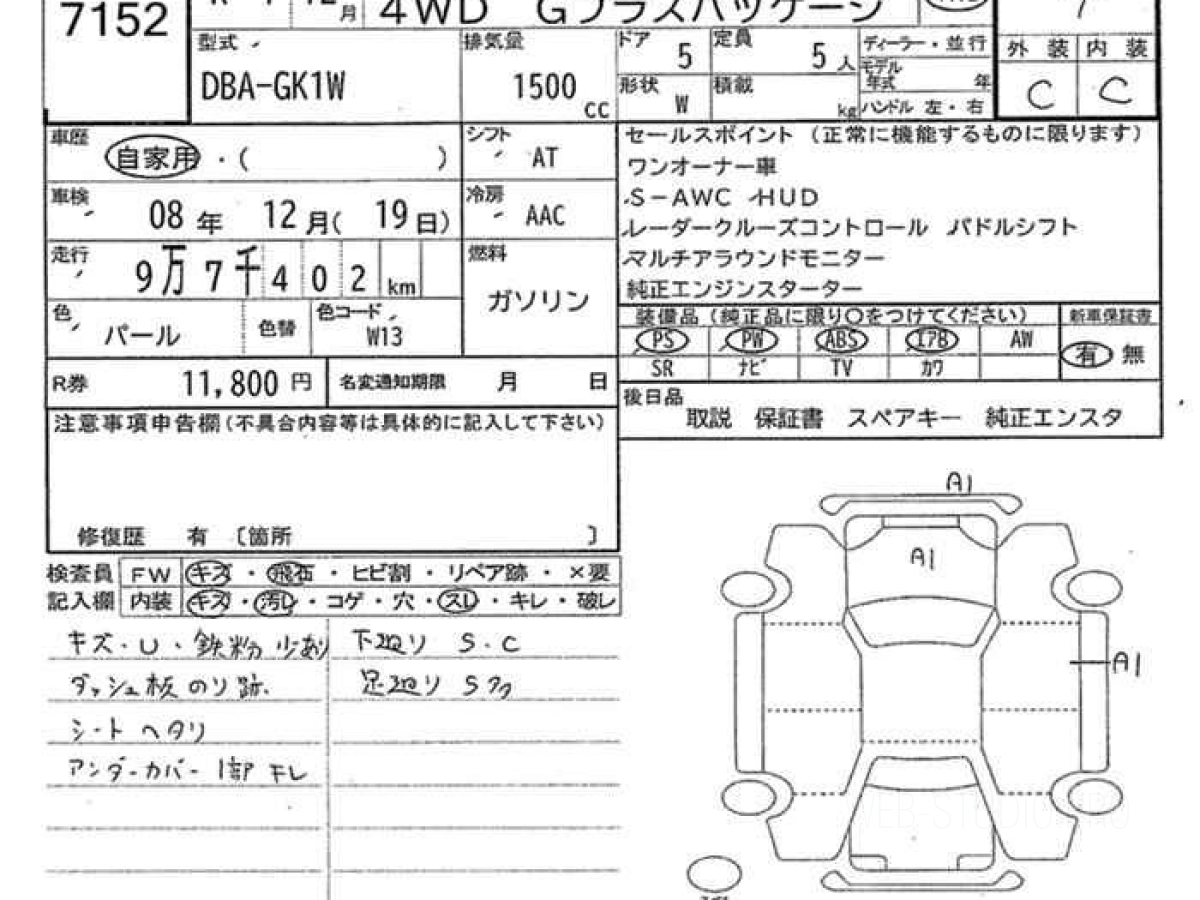 7152
4WD Gプラスパッケージ
型式 DBA-GK1W
排気量 1500 cc
ドア 5
定員 5 人
形状 W
積載 kg
ディーラー・並行
モデル年式 年
ハンドル 左・右
外装 内装
C C
車歴 自家用・( )
シフト AT
車検 08年 12月( 19日)
冷房 AAC
走行 9万7千402km
燃料 ガソリン
色 パール
色替
色コード W13
R券 11,800円
名変通知期限 月 日
セールスポイント (正常に機能するものに限ります)
ワンオーナー車
S-AWC HUD
レーダークルーズコントロール パドルシフト
マルチアラウンドモニター
純正エンジンスターター
装備品(純正品に限り○をつけてください)
新車保証書
PS PW ABS エアB AW
有 無
SR ナビ TV カワ
後日品
取説 保証書 スペアキー 純正エンスタ
注意事項申告欄(不具合内容等は具体的に記入して下さい)
修復歴 有 〔箇所 〕
検査員 FW キズ・飛石・ヒビ割・リペア跡・×要
記入欄 内装 キズ・汚レ・コゲ・穴・スレ・キレ・破レ
キズ・U・鉄粉 少あり
下廻り S.C
ダッシュ板 のり跡.
足廻り Sアク
シート ヘタリ
アンダーカバー 1部 キレ
A1
A1
A1